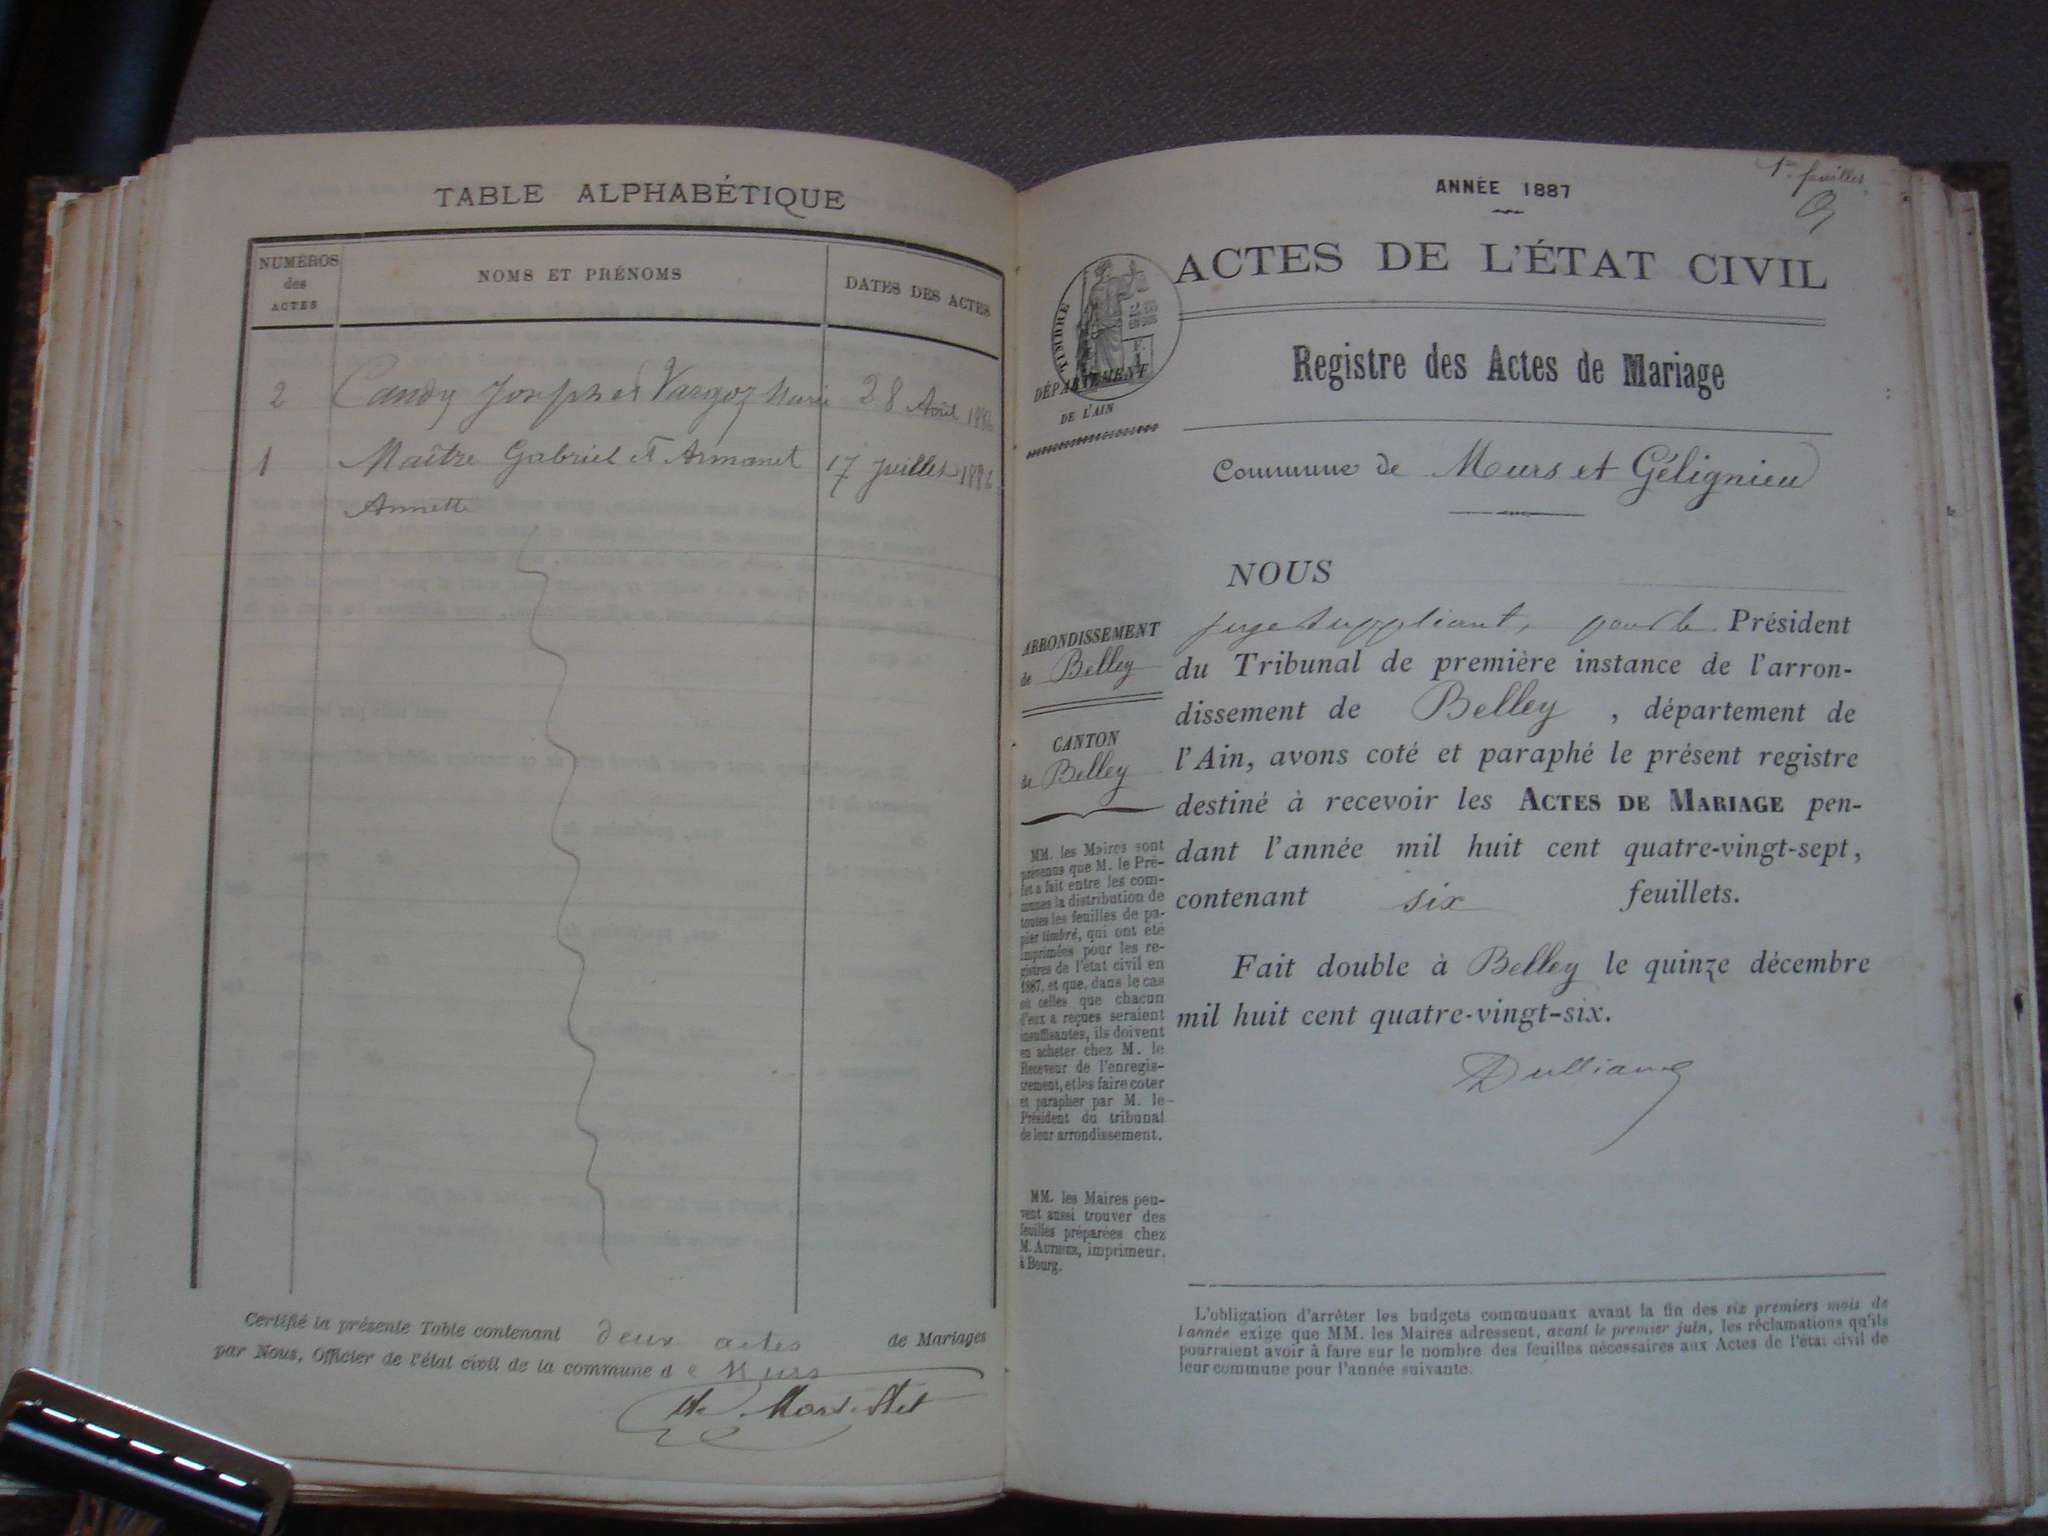 TABLE ALPHABÉTIQUE
NUMÉROS des ACTES
NOMS ET PRÉNOMS
DATES DES ACTES
2 Candy Joseph et Vargoz Marie 28 Août 1886
1 Maître Gabriel et Armanet 17 juillet 1886
Annette
Certifié la présente Table contenant deux actes de Mariages
par Nous, Officier de l'état civil de la commune de Murs
ANNÉE 1887
ACTES DE L'ÉTAT CIVIL
TIMBRE
2
EN SUS
DÉPARTEMENT
DE L'AIN
Registre des Actes de Mariage
Commune de Murs et Gélignieu
ARRONDISSEMENT
de Belley
CANTON
de Belley
MM. les Maires sont
prévenus que M. le Pré-
fet a fait entre les com-
munes la distribution de
toutes les feuilles de pa-
pier timbré, qui ont été
imprimées pour les re-
gistres de l'état civil en
1887, et que, dans le cas
où celles que chacun
d'eux a reçues seraient
insuffisantes, ils doivent
en acheter chez M. le
Receveur de l'enregis-
trement, et les faire coter
et parapher par M. le
Président du tribunal
de leur arrondissement.
MM. les Maires peu-
vent aussi trouver des
feuilles préparées chez
M. AUTHIER, imprimeur,
à Bourg.
NOUS
juge suppléant, pour le Président
du Tribunal de première instance de l'arron-
dissement de Belley, département de
l'Ain, avons coté et paraphé le présent registre
destiné à recevoir les ACTES DE MARIAGE pen-
dant l'année mil huit cent quatre-vingt-sept,
contenant six feuillets.
Fait double à Belley le quinze décembre
mil huit cent quatre-vingt-six.
L'obligation d'arrêter les budgets communaux avant la fin des six premiers mois de
l'année exige que MM. les Maires adressent, avant le premier juin, les réclamations qu'ils
pourraient avoir à faire sur le nombre des feuilles nécessaires aux Actes de l'état civil de
leur commune pour l'année suivante.